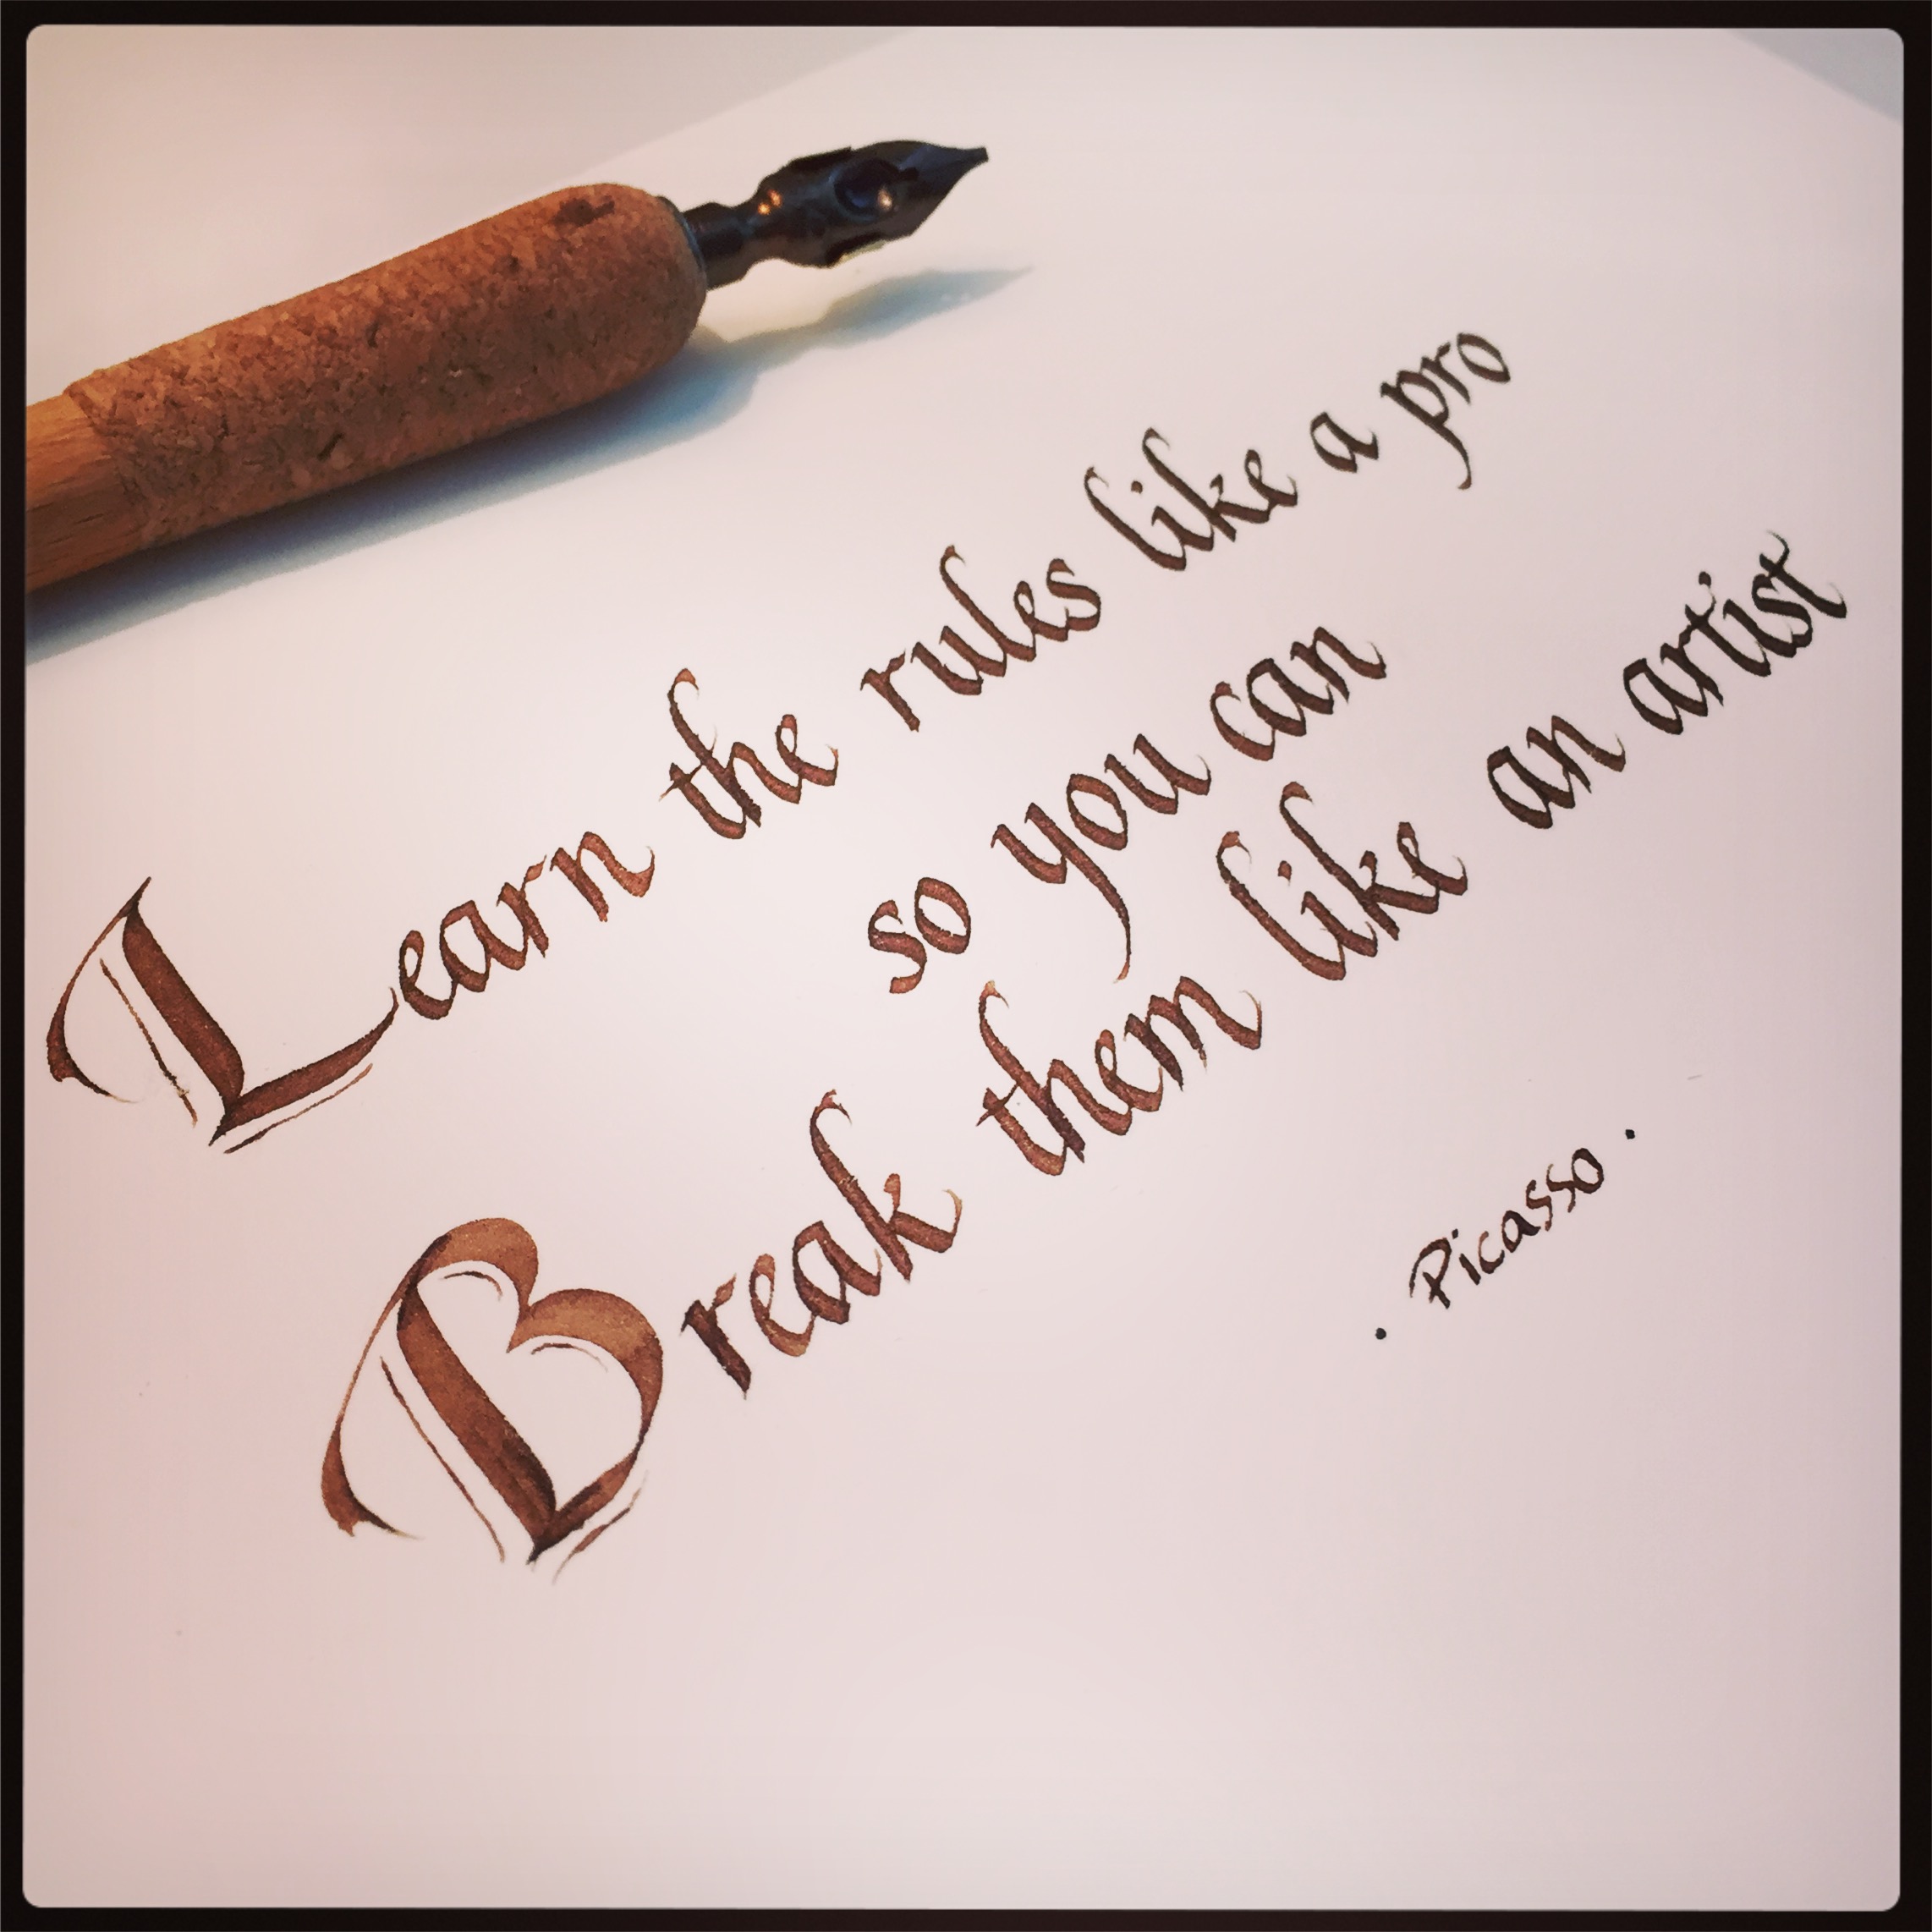 Learn the rules like a pro
so you can
Break them like an artist
· Picasso ·